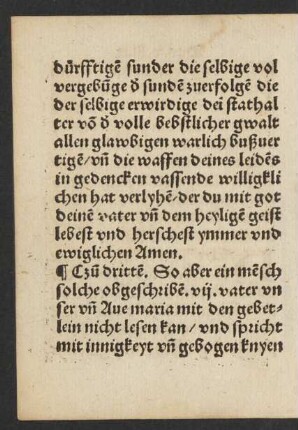 dürfftigē sunder die selbige vol
vergebūge d̄ sundē zuerfolgē die
der selbige erwirdige dei stathal
ter vō d̄ volle bebstlicher gwalt
allen glawbigen warlich bußuer
tigē/vn̄ die waffen deines leidēs
in gedencken vassende williglkli
chen hat verlyhē/der du mit got
deinē vater vn̄ dem heyligē geist
lebest vnd herschest ymmer vnd
ewiglichen Amen.
¶ Czū drittē. So aber ein mēsch
solche obgeschribē. vij. vater vn
ser vn̄ Aue maria mit den gebet-
lein nicht lesen kan/vnd spricht
mit innigkeyt vn̄ gebogen knyen